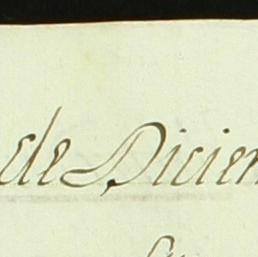 de Dicien